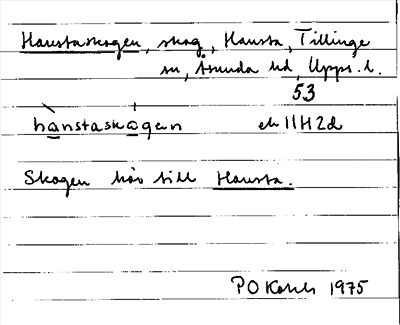 Haustaskogen, skog, Hausta, Tillinge
sn, Åsunda hd, Upps. l.
53
hanstaskogen ek 11H2d
Skogen hör till Hausta.
P O 1975